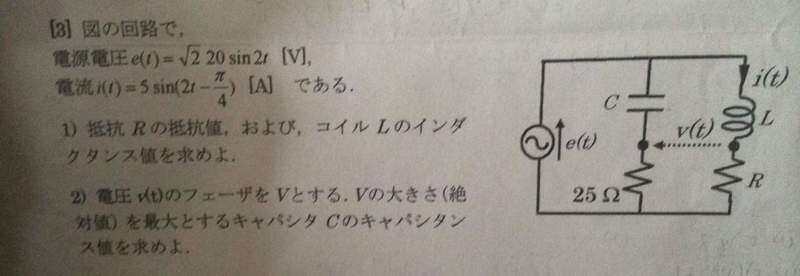 [3] 図の回路で，
電源電圧 e(t) = √2 20 sin 2t [V],
電流 i(t) = 5 sin(2t − π/4) [A] である．
1) 抵抗 R の抵抗値，および，コイル L のインダ
クタンス値を求めよ．
2) 電圧 v(t)のフェーザを V とする．V の大きさ(絶
対値) を最大とするキャパシタ C のキャパシタン
ス値を求めよ．
i(t)
C
L
v(t)
e(t)
25 Ω
R